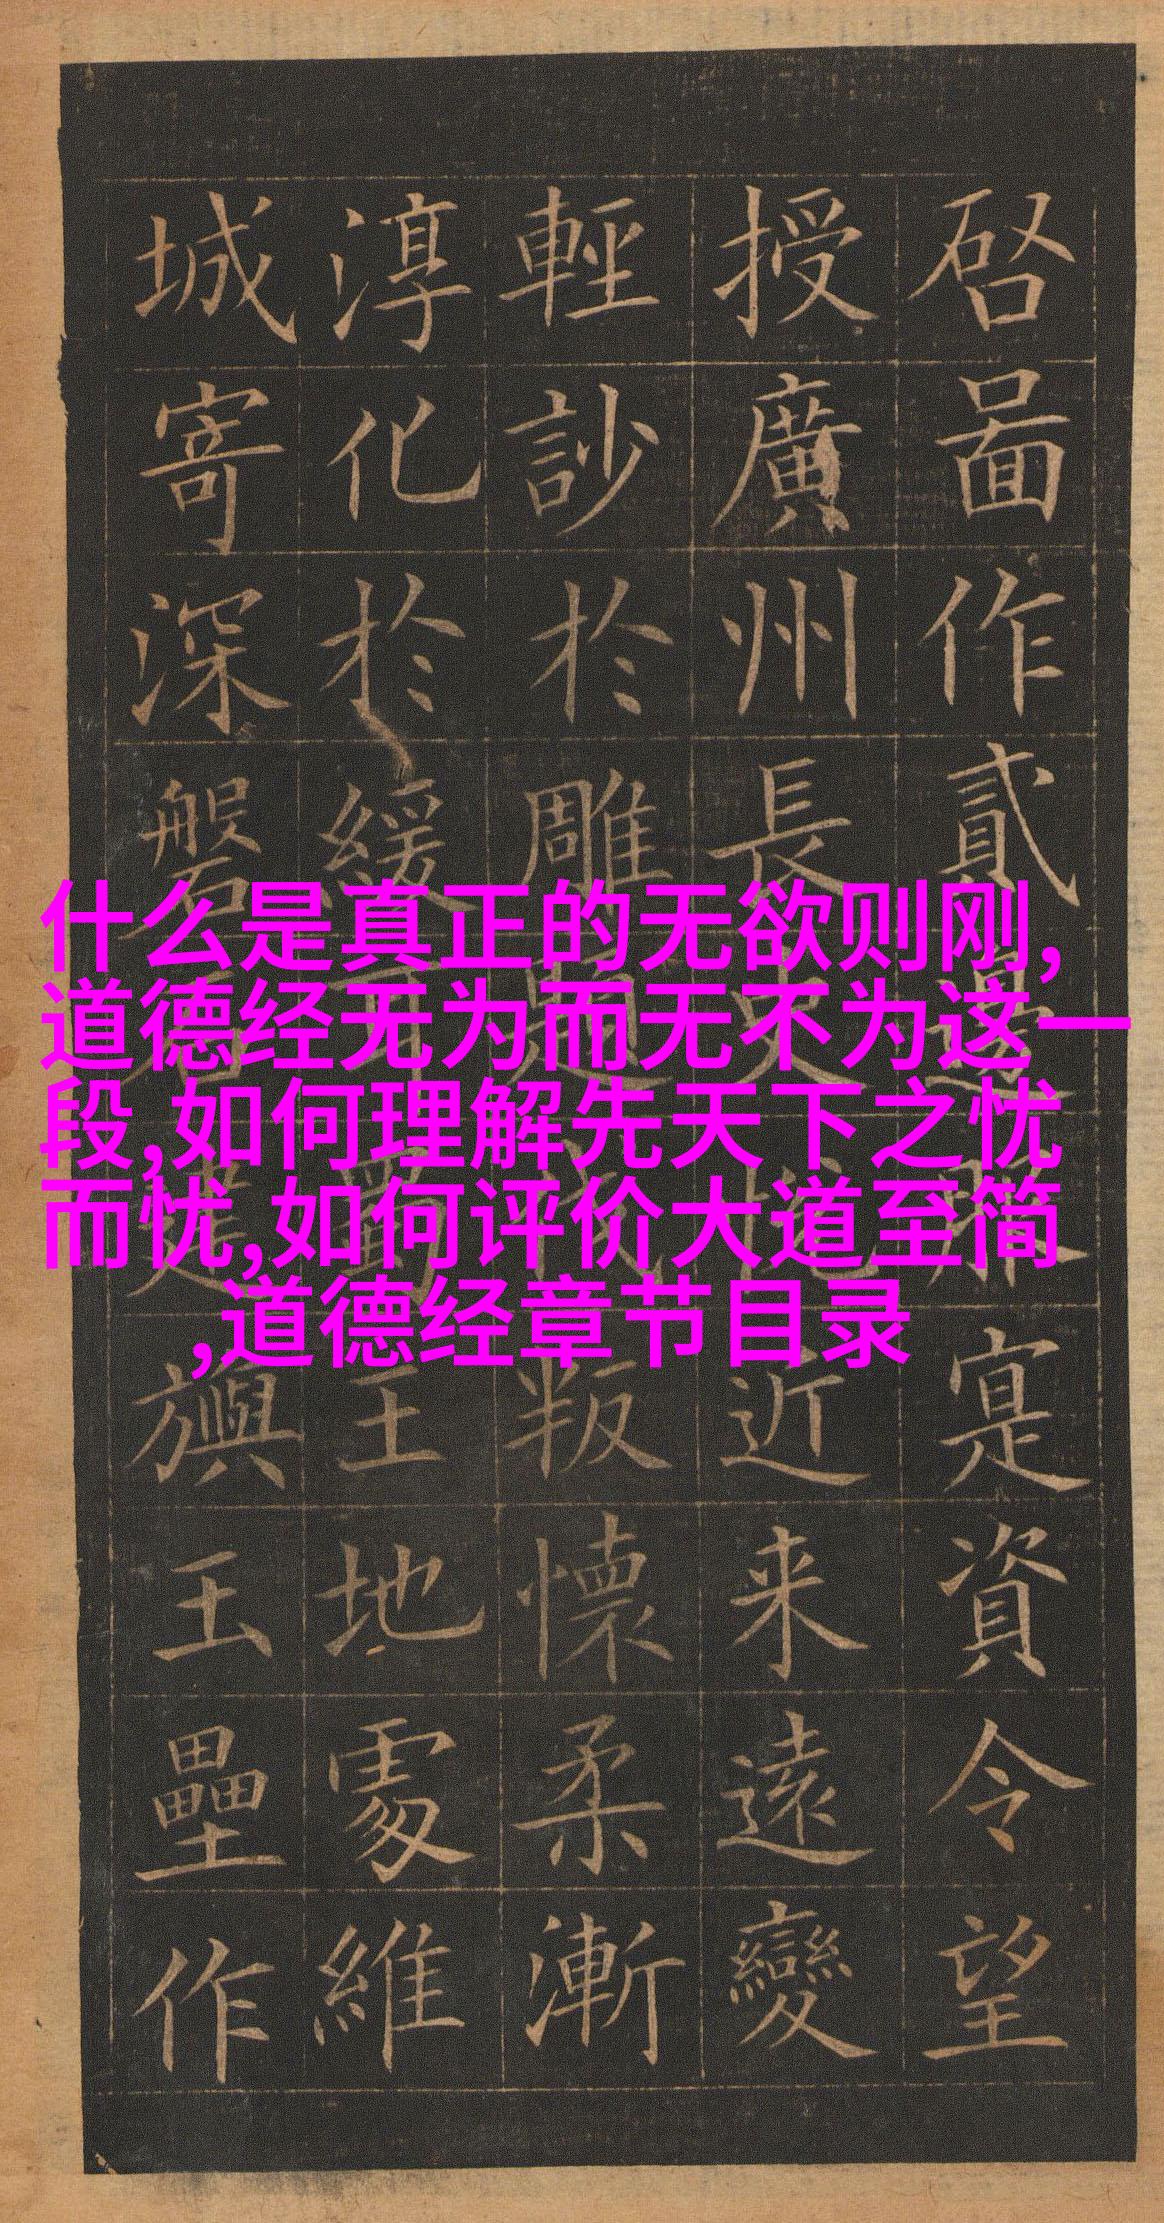 什么是真正的无欲则刚,
道德经无为而无不为这一
段,如何理解先天下之忧
而忧,如何评价大道至简
,道德经章节目录
啚作貳寔資令望
授廣州長史近来遠變
輕訬於雕題伐叛懷柔漸
淳化於緩耳蜀王地處維
城寄深磐石建旟玉壘作